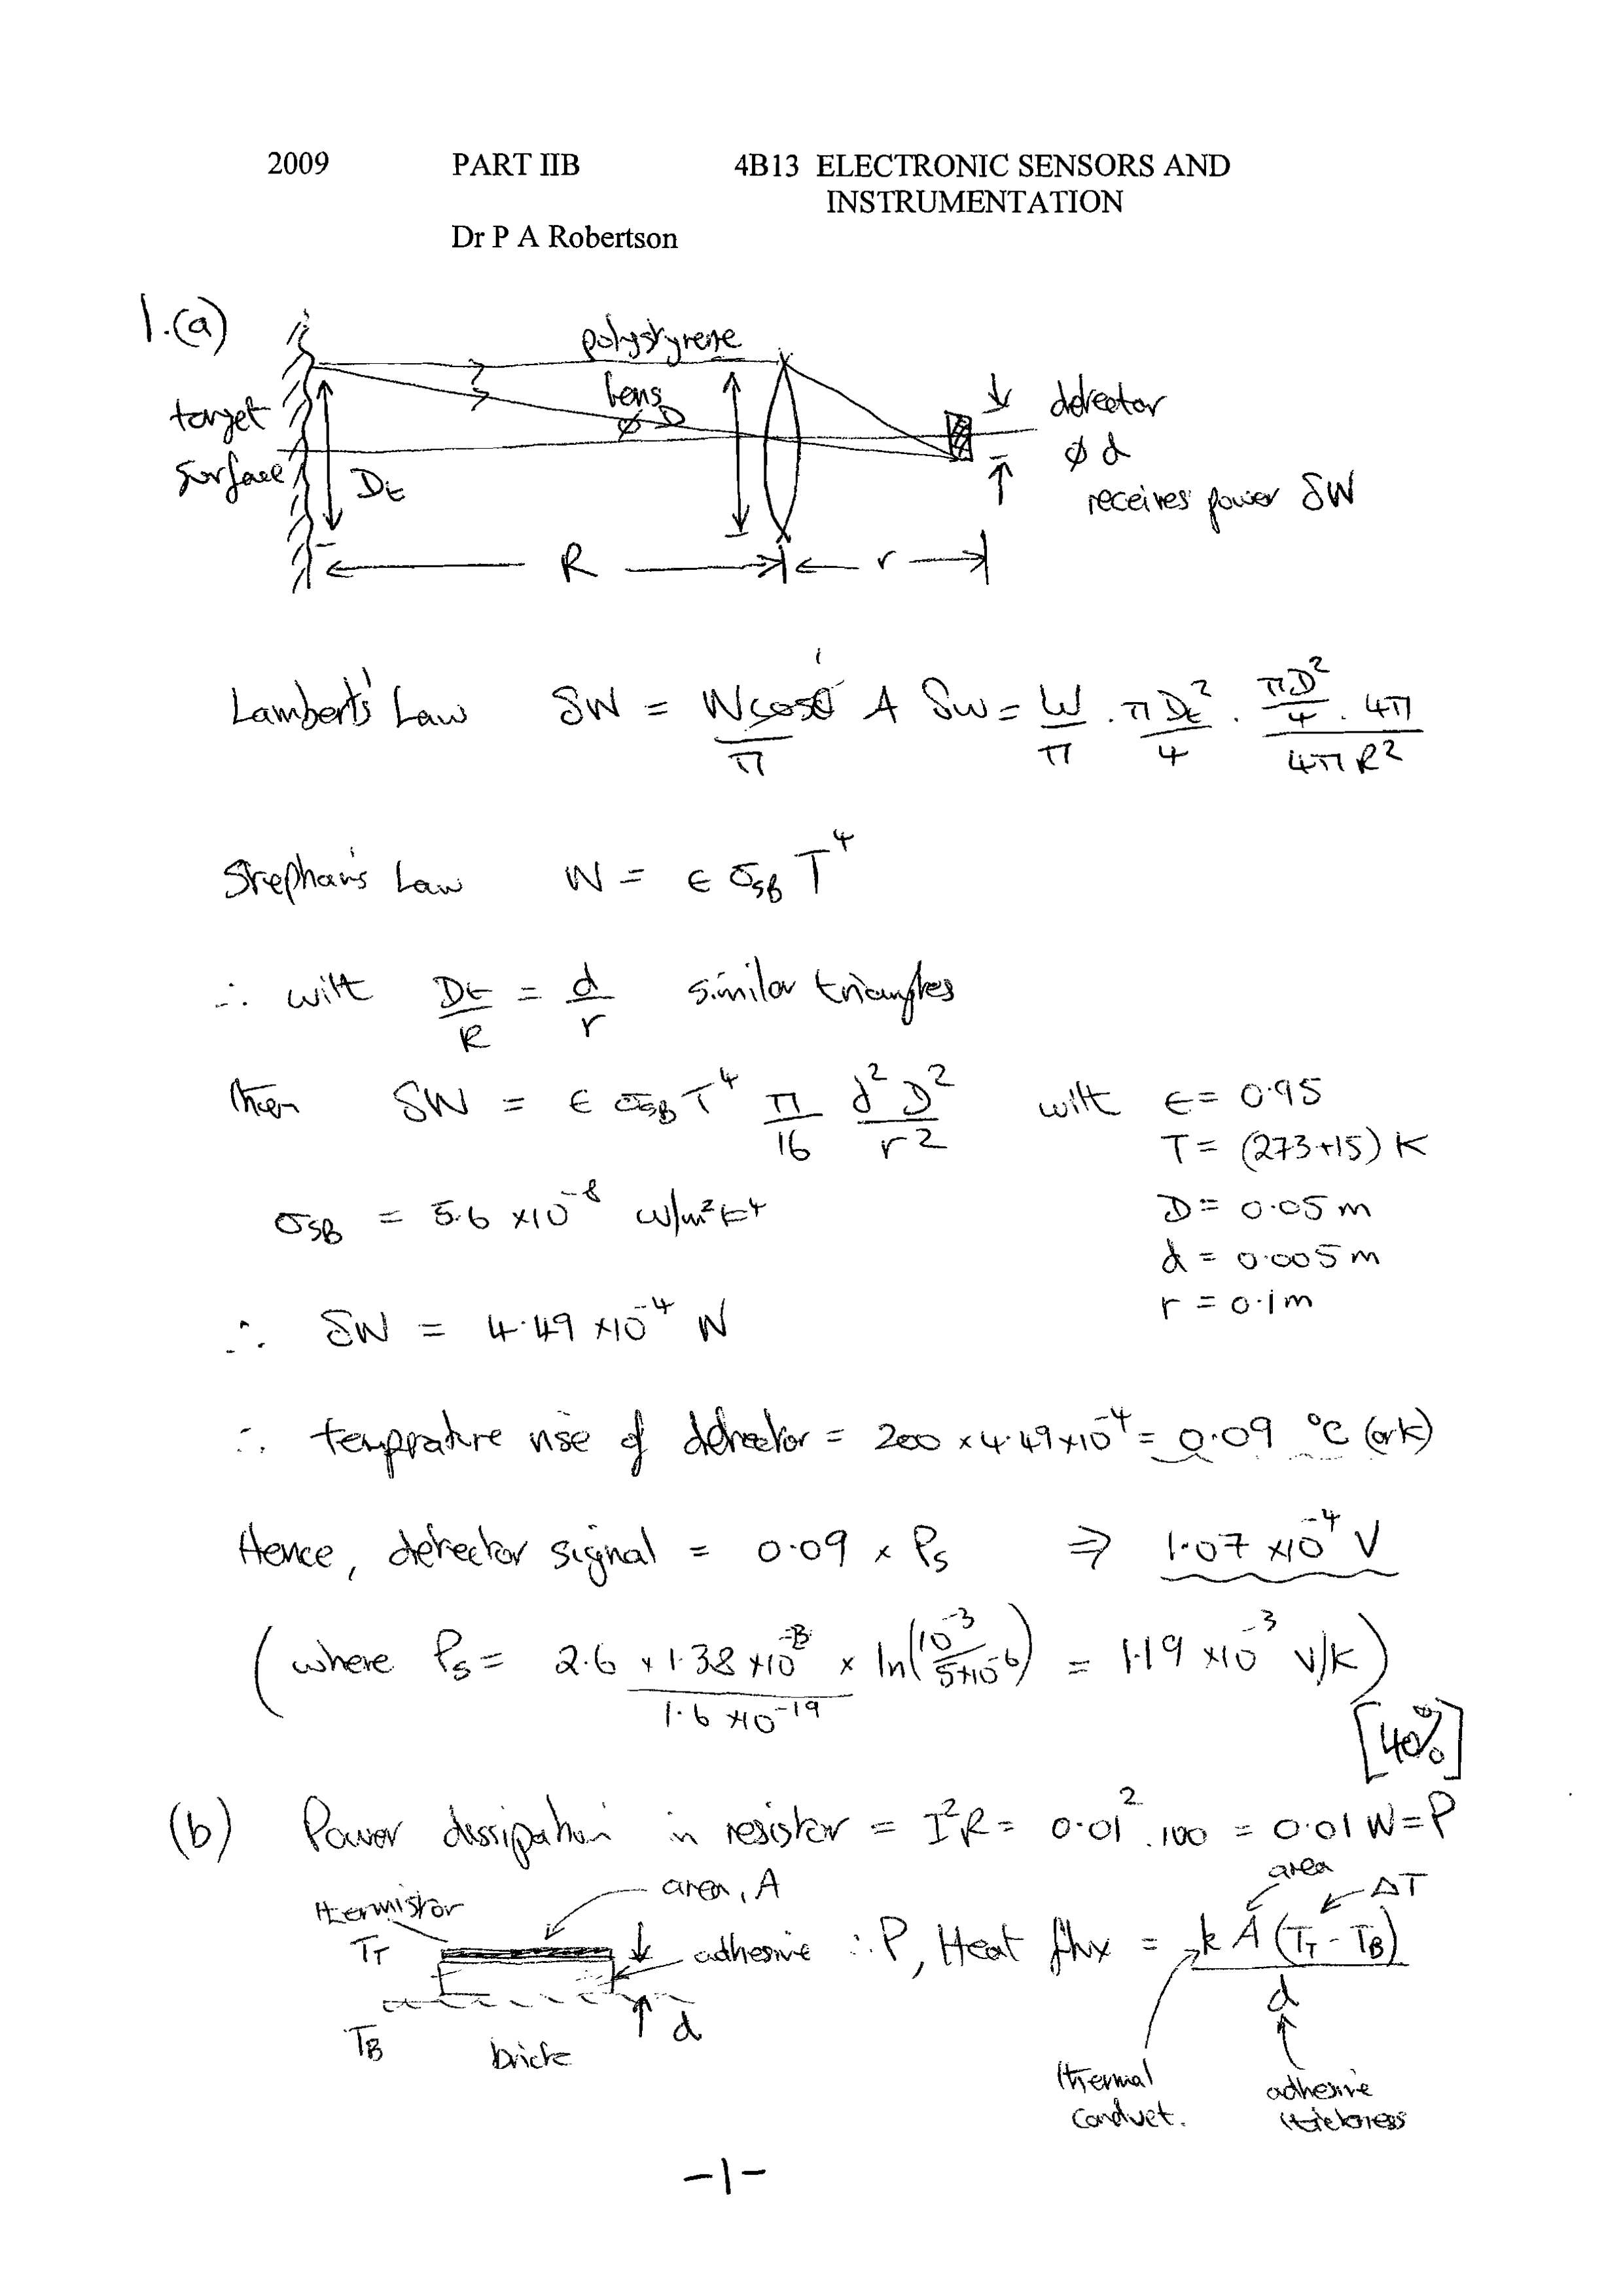 2009 PART IIB 4B13 ELECTRONIC SENSORS AND
INSTRUMENTATION
Dr P A Robertson
1.(a)
polystyrene
lens
ø D
target
surface
D_t
detector
ø d
receives power δW
R r
Lambert's Law δW = W cosθ / π A δω = W/π . πD_t²/4 . (πD²/4 . 4π) / 4πR²
1
Stephan's Law W = ϵ σ_SB T⁴
∴ with D_t/R = d/r similar triangles
then δW = ϵ σ_SB T⁴ π/16 d²D²/r² with ϵ = 0.95
T = (273+15) K
σ_SB = 5.6 ×10⁻⁸ W/m²K⁴ D = 0.05 m
d = 0.005 m
r = 0.1m
∴ δW = 4.49 ×10⁻⁴ W
∴ temprature rise of detector = 200 × 4.49×10⁻⁴ = 0.09 °C (or K)
Hence, detector signal = 0.09 × P_s ⇒ 1.07 ×10⁻⁴ V
(where P_s = 2.6 × 1.38 ×10⁻²³ / 1.6 ×10⁻¹⁹ × ln(10⁻³ / 5×10⁻⁶) = 1.19 ×10⁻³ V/K)
[40%]
(b) Power dissipation in resistor = I²R = 0.01² . 100 = 0.01 W = P
thermistor
T_T
area, A
adhesive
d
T_B
brick
∴ P, Heat flux = k A (T_T - T_B) / d
area
ΔT
thermal
conduct.
adhesive
thickness
-1-